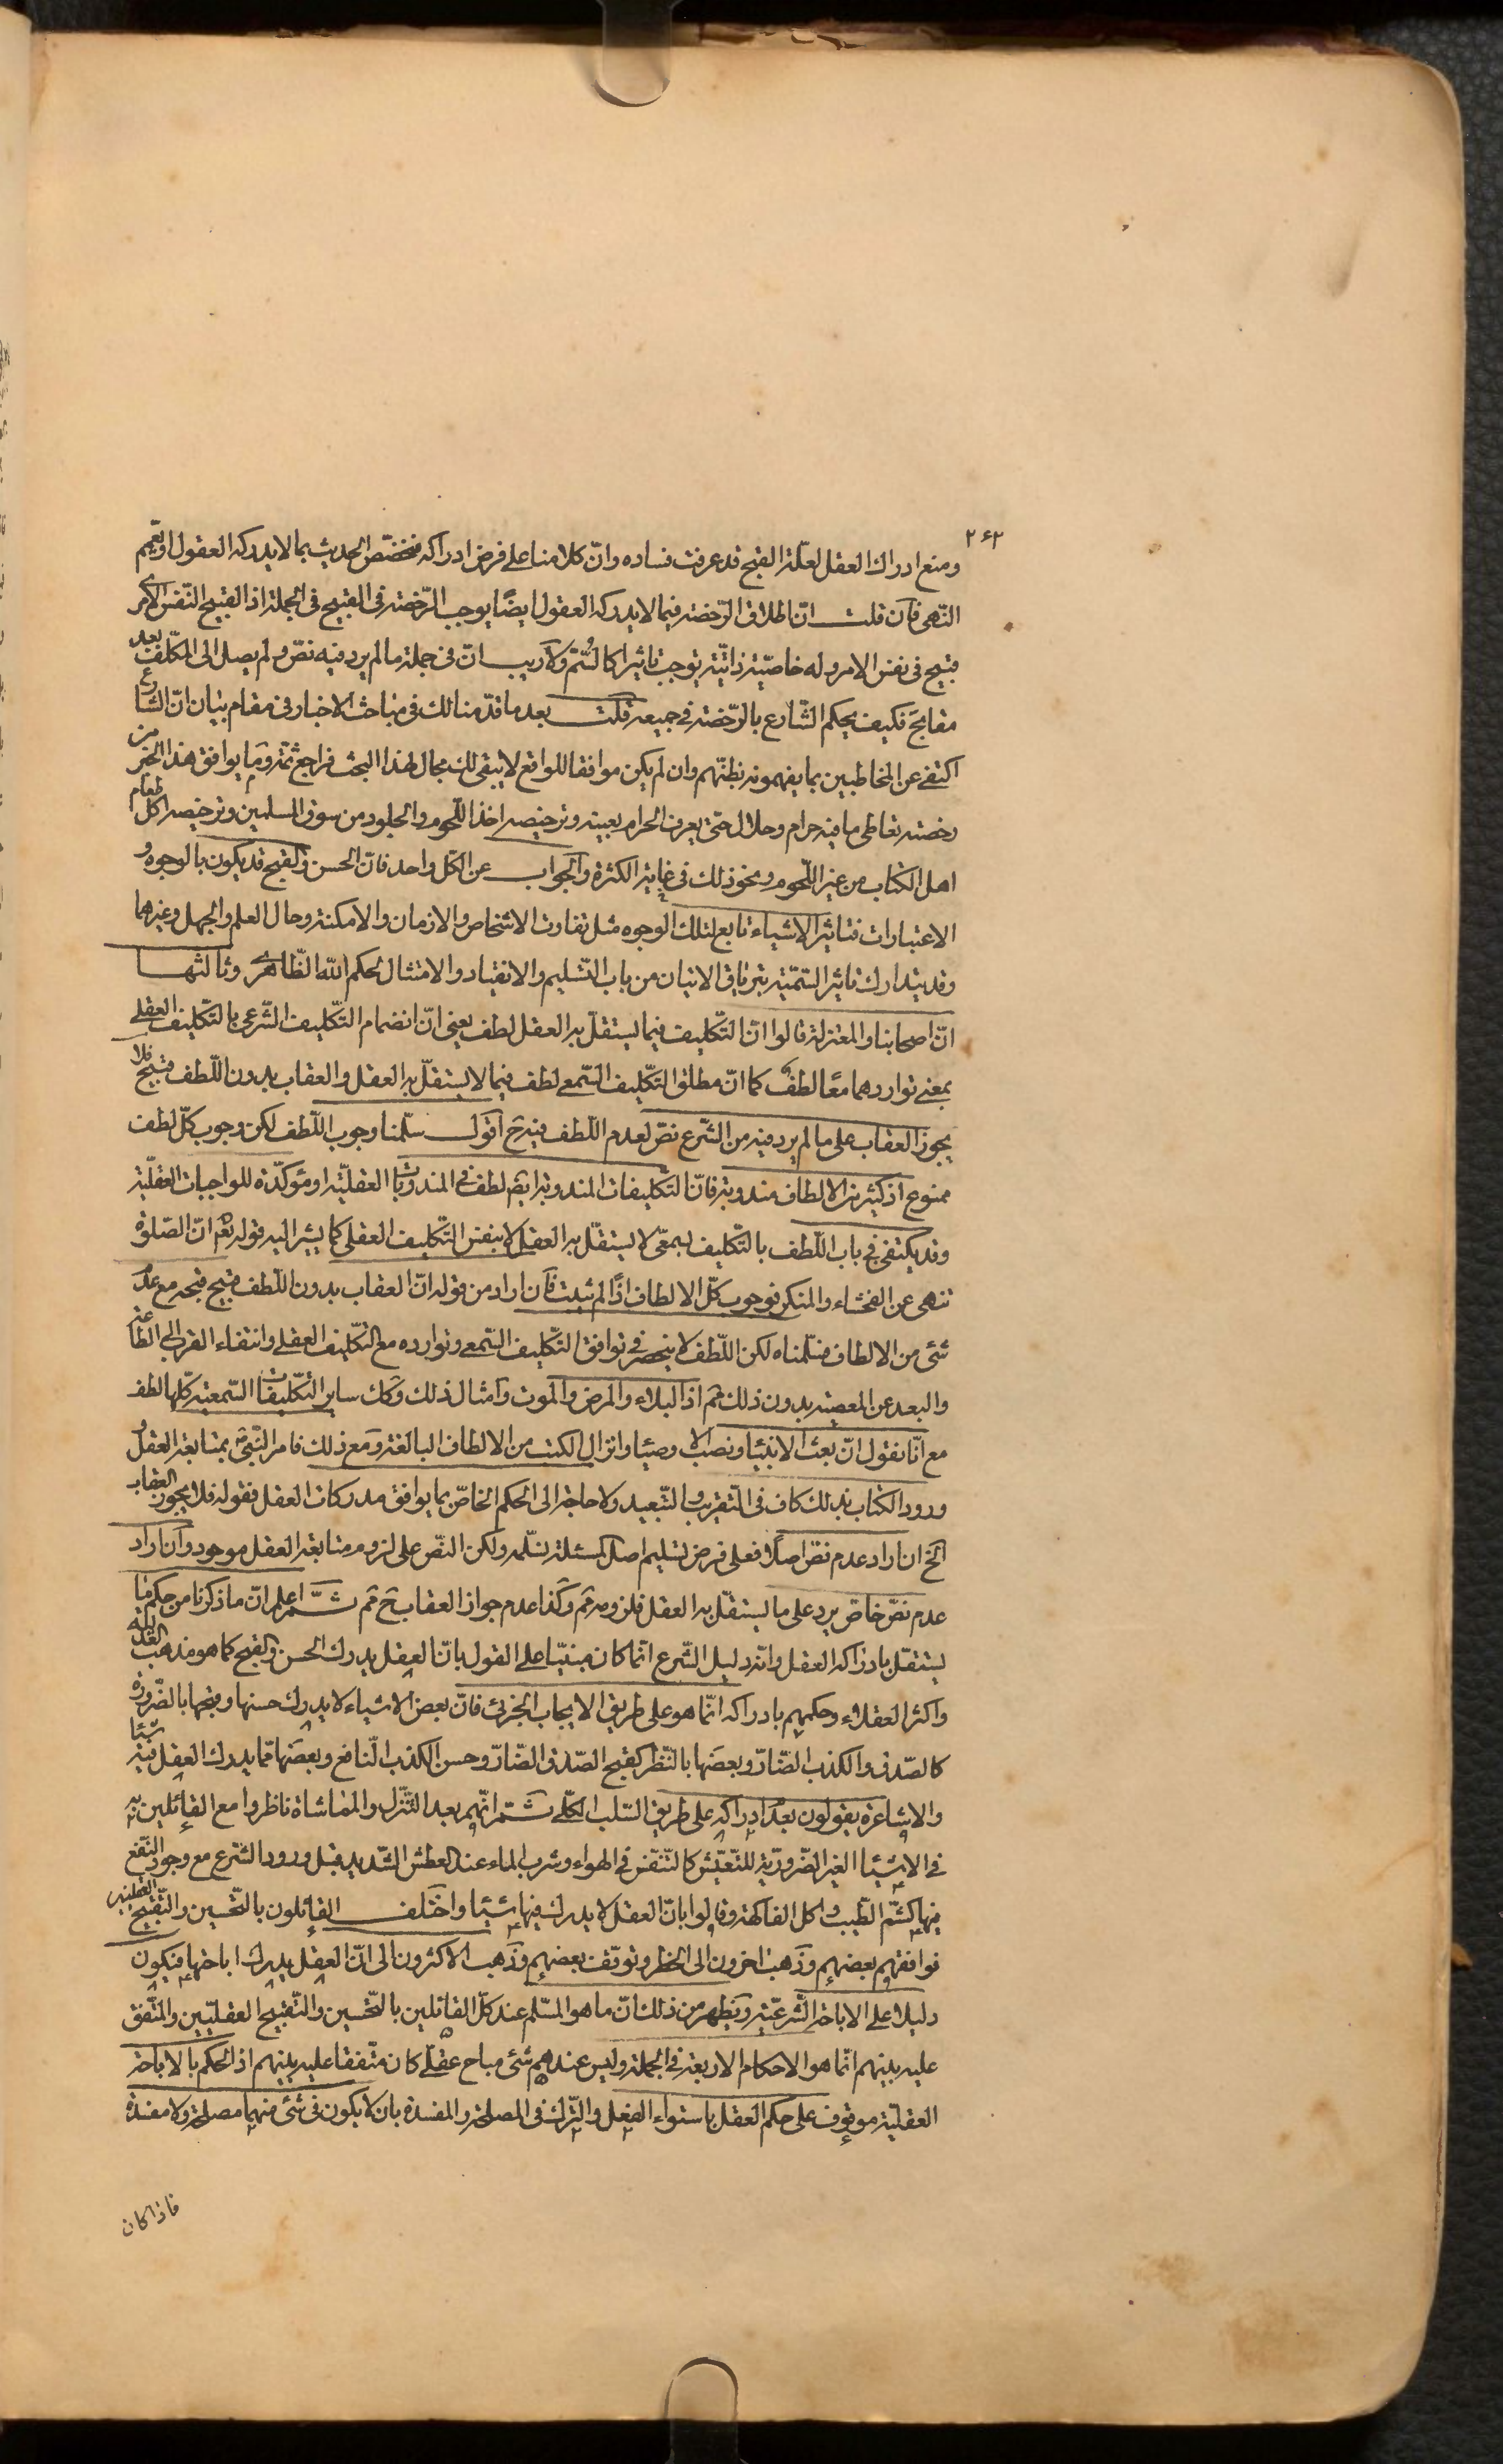 ٢٤٣
ومنع ادراك العقل لعلّة القبح قد عرفت فساده وانّ كلامنا على فرض ادراكه فنخصّص الحديث بما لا يدركه العقول او بتعميم
النّهى فان قلت انّ اطلاق الرّخصة فيما لا يدركه العقول ايضًا يوجب الرّخصة فى القبيح فى الجملة اذ القبيح النّفس الامرى
قبيح فى نفس الامر وله خاصيّة ذاتيّة يوجب تاثيرا كالسّمّ ولا ريب انّ فى جملة ما لم يرد فيه نصّ ولم يصل الى المكلّف بعد
مقابح فكيف يحكم الشّارع بالرّخصة فى جميعه قلت بعد ما قدّمنا لك فى مباحث الاخبار فى مقام بيان انّ الشّارع
اكتفى عن المخاطبين بما يفهمونه بظنّهم وان لم يكن موافقا للواقع لا يبقى لك مجال لهذا البحث فراجع ثمّة وما يوافق هذا الخبر من
رخصة تعاطى ما فيه حرام وحلال حتّى يعرف الحرام بعينه وترخيصه اخذ اللّحوم والجلود من سوق المسلمين وترخيصه اكل طعام
اهل الكتاب من غير اللّحوم ونحو ذلك فى غاية الكثرة والجواب عن الكلّ واحد فانّ الحسن والقبح قد يكون بالوجوه و
الاعتبارات فتاثير الاشياء تابع لتلك الوجوه مثل تفاوت الاشخاص والازمان والامكنة وحال العلم والجهل وغيرهما
وقد يتدارك تاثير السّمّية بترياق الاتيان من باب التّسليم والانقياد والامتثال لحكم اللّه الظّاهرى وثالثها
انّ اصحابنا والمعتزلة قالوا انّ التّكليف فيما يستقلّ به العقل لطف يعنى انّ انضمام التّكليف الشّرعى بالتّكليف العقلى
بمعنى تواردهما معًا لطف كما انّ مطلق التّكليف السّمعى لطف فيما لا يستقلّ به العقل والعقاب بدون اللّطف قبيح فلا
يجوز العقاب على ما لم يرد فيه من الشّرع نصّ لعدم اللّطف فيه ح اقول سلّمنا وجوب اللّطف لكن وجوب كلّ لطف
ممنوع اذ كثير من الالطاف مندوبة فانّ التّكليفات المندوبة ايضا لطف فى المندوبات العقليّة او مؤكّدة للواجبات العقليّة
وقد يكتفى فى باب اللّطف بالتّكليف بسمعىّ لا يستقلّ به العقل لا بنفس التّكليف العقلى كما يشير اليه قوله تعم انّ الصّلوة
تنهى عن الفحشاء والمنكر فوجوب كلّ الالطاف اذًا لم يثبت فان اراد من قوله انّ العقاب بدون اللّطف قبيح قبحه مع عدم
شئ من الالطاف فسلّمناه لكن اللّطف لا ينحصر فى توافق التّكليف السّمعى وتوارده مع التّكليف العقلى وانتفاء القرب الى الطّاعة
والبعد عن المعصية بدون ذلك مم اذ البلاء والمرض والموت وامثال ذلك وكك ساير التّكليفات السّمعية كلّها لطف
مع انّا نقول انّ بعث الانبياء ونصب الاوصياء وانزال الكتب من الالطاف البالغة ومع ذلك فامر النّبى بمتابعة العقل و
ورود الكتاب بذلك كاف فى التّقريب والتّبعيد ولا حاجة الى الحكم الخاصّ بما يوافق مدركات العقل فقوله فلا يجوز العقاب
الخ ان اراد عدم نصّ اصلًا فعلى فرض تسليم اصل المسئلة نسلّمه ولكن النّصّ على لزوم متابعة العقل موجود وان اراد
عدم نصّ خاصّ يرد على ما يستقلّ به العقل فلزومه مم وكذا عدم جواز العقاب ح مم ثمّ اعلم انّ ما ذكرنا من حكم ما
يستقلّ بادراكه العقل وانّه دليل الشّرع انّما كان مبنيّا على القول بانّ العقل يدرك الحسن والقبح كما هو مذهب العدليّة
واكثر العقلاء وحكمهم بادراكه انّما هو على طريق الايجاب الجزئى فانّ بعض الاشياء لا يدرك حسنها وقبحها بالضّرورة
كالصّدق والكذب الضّارّ وبعضها بالنّظر كقبح الصّدق الضّارّ وحسن الكذب النّافع وبعضها ممّا يدرك العقل فيه شيئا
والاشاعرة يقولون بعدم ادراكه على طريق السّلب الكلّى ثمّ انّهم بعد التّنزّل والمماشاة ناظروا مع القائلين به
فى الاشياء الغير الضّرورية للتّعيّش كالتّنفّس فى الهواء وشرب الماء عند العطش الشّديد قبل ورود الشّرع مع وجود النّفع
فيها كشمّ الطّيب واكل الفاكهة وقالوا بانّ العقل لا يدرك فيها شيئا واختلف القائلون بالتّحسين والتّقبيح العقليين
فوافقهم بعضهم وذهب اخرون الى الحظر وتوقّف بعضهم وذهب الاكثرون الى انّ العقل يدرك اباحتها فيكون
دليلا على الاباحة الشّرعيّة ويظهر من ذلك انّ ما هو المسلّم عند كلّ القائلين بالتّحسين والتّقبيح العقليّين والمتّفق
عليه بينهم انّما هو الاحكام الاربعة فى الجملة وليس عندهم شئ مباح عقلى كان متّفقا عليه بينهم اذ الحكم بالاباحة
العقليّة موقوف على حكم العقل باستواء الفعل والتّرك فى المصلحة والمفسدة بان لا يكون فى شئ منهما مصلحة ولا مفسدة
فاذا كان